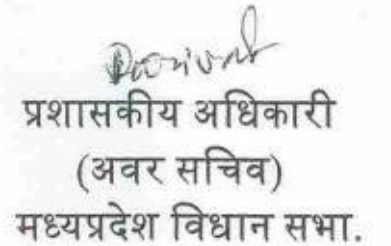 प्रशासकीय अधिकारी
(अवर सचिव)
मध्यप्रदेश विधान सभा.